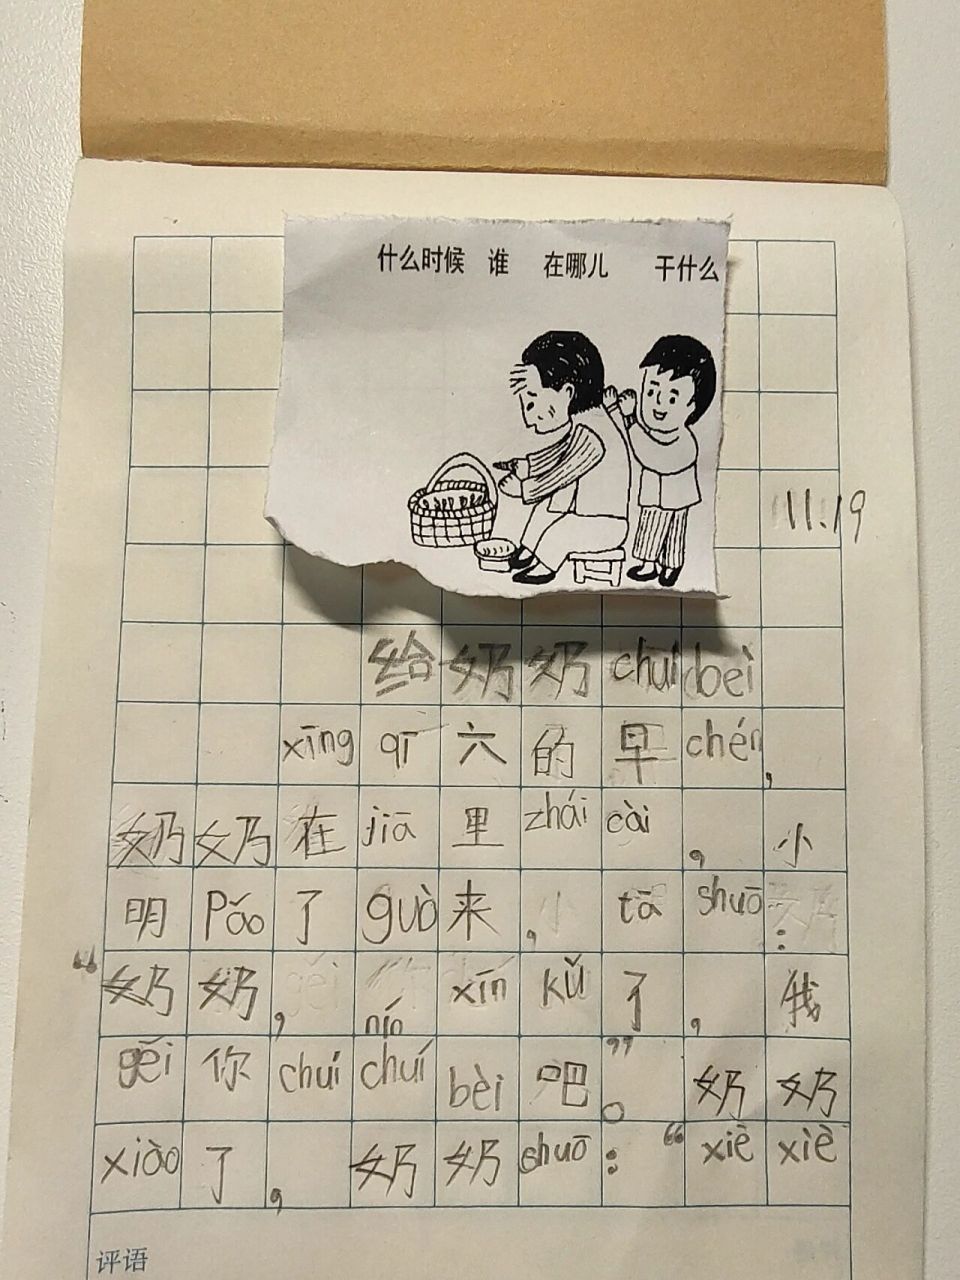 什么时候 谁 在哪儿 干什么
11.19
给奶奶chuíbèi
xīng qī六的早chén,
奶奶在jiā里zhái cài,小
明pǎo了guò来,tā shuō:
“奶奶,nín xīn kǔ了,我
gěi你chuí chuí bèi吧。”奶奶
xiào了,奶奶shuō:“xiè xiè
评语